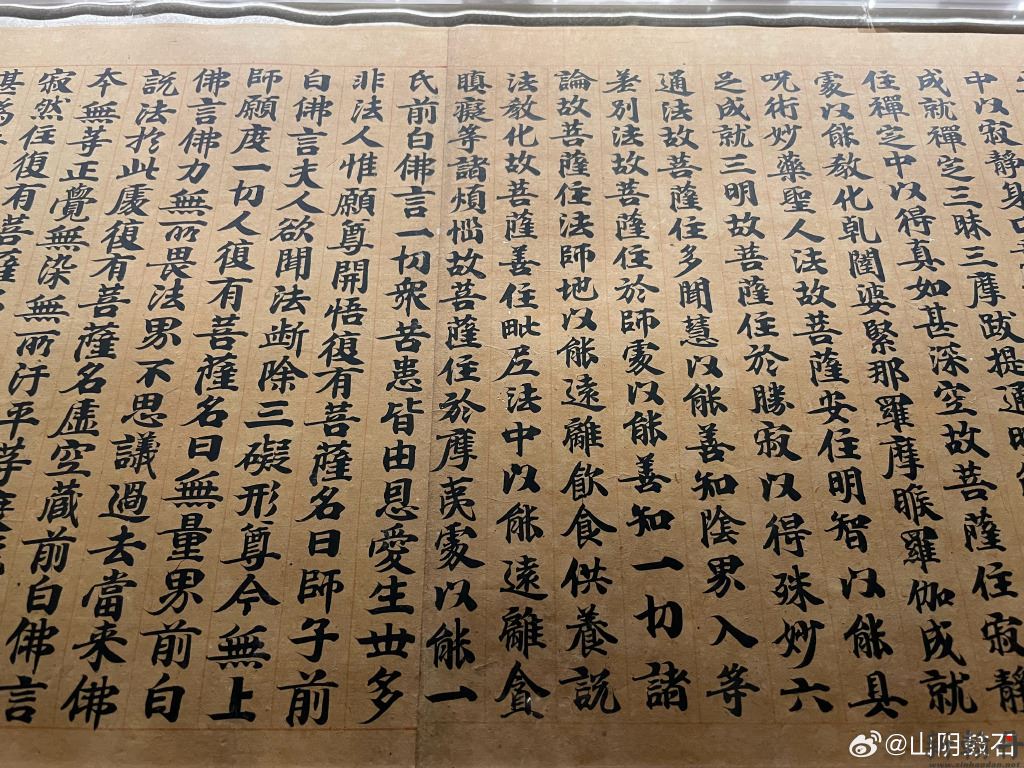 中以寂靜身口
成就禪定三昧三摩跋提通明
住禪定中以得真如甚深空故菩薩住寂靜
處以能教化乹闥婆緊那羅摩睺羅伽成就
呪術妙藥聖人法故菩薩安住明智以能具
足成就三明故菩薩住於勝寂以得殊妙六
通法故菩薩住多聞慧以能善知陰界入等
差別法故菩薩住於師處以能善知一切諸
論故菩薩住法師地以能遠離飲食供養說
法教化故菩薩善住毗尼法中以能遠離貪
瞋癡等諸煩惱故菩薩住於摩夷處以能一
氏前白佛言一切衆苦患皆由恩愛生世多
非法人惟願尊開悟復有菩薩名曰師子前
白佛言夫人欲聞法断除三礙形尊今無上
師願度一切人復有菩薩名曰無量界前白
佛言佛力無所畏法界不思議過去當来佛
說法於此處復有菩薩名虛空藏前白佛言
本無等正覺無染無所汙平等
寂然住復有菩薩
@山阴鼓石
www.xinhaodan.net